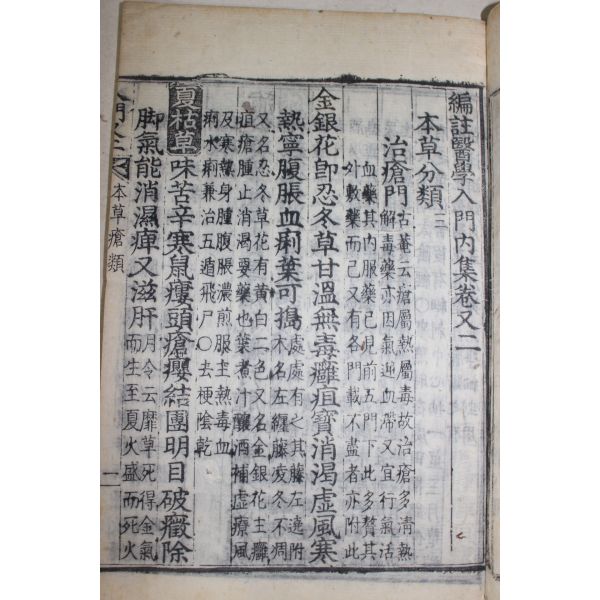 編註醫學入門內集卷又二
本草分類二
治瘡門古菴云瘡屬熱屬毒故治瘡多淸熱
解毒藥亦因氣逆血滯又宜行氣活
血藥其內服藥已見前五門下此多贅其
外敷藥而已又有各門載不盡者亦附此
金銀花卽忍冬草甘溫無毒癰疽寶消渴虛風寒
熱寧腹脹血痢葉可搗處處有之其藤左遶附
木名左纏藤凌冬不凋
又名忍冬草花有黃白二色又名金銀花主癰
疽瘡腫止消渴要藥也葉煮汁釀酒補虛療風
及寒熱身腫腹脹濃煎服主熱毒血
痢水痢兼治五遁飛尸○去梗陰乾
夏枯草味苦辛寒鼠瘻頭瘡癭結團明目破癥除
脚氣能消濕痺又滋肝月令云靡草死得金氣
而生至夏火盛而死火
入門又二 本草瘡類 一